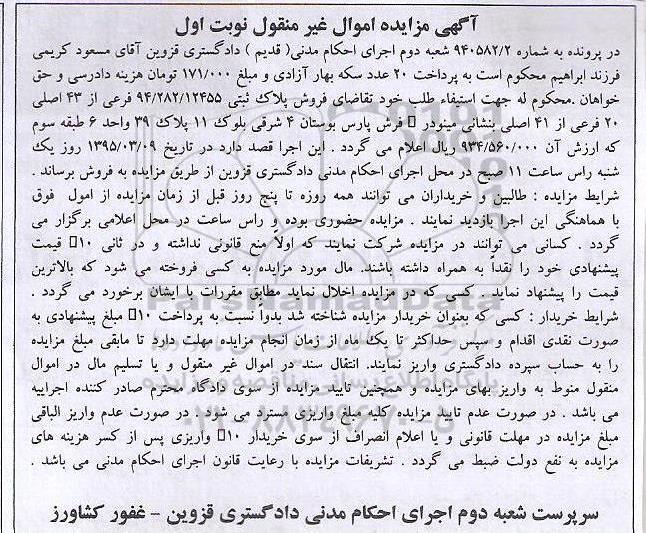 آگهی مزایده اموال غیر منقول نوبت اول
در پرونده به شماره ۹۴۰۵۸۲/۲ شعبه دوم اجرای احکام مدنی( قدیم ) دادگستری قزوین آقای مسعود کریمی
فرزند ابراهیم محکوم است به پرداخت ۲۰ عدد سکه بهار آزادی و مبلغ ۱۷۱/۰۰۰ تومان هزینه دادرسی و حق
خواهان .محکوم له جهت استیفاء طلب خود تقاضای فروش پلاک ثبتی ۹۴/۲۸۲/۱۲۴۵۵ فرعی از ۴۳ اصلی
۲۰ فرعی از ۴۱ اصلی بنشانی مینودر □ فرش پارس بوستان ۴ شرقی بلوک ۱۱ پلاک ۳۹ واحد ۶ طبقه سوم
که ارزش آن ۹۳۴/۵۶۰/۰۰۰ ریال اعلام می گردد . این اجرا قصد دارد در تاریخ ۱۳۹۵/۰۳/۰۹ روز یک
شنبه راس ساعت ۱۱ صبح در محل اجرای احکام مدنی دادگستری قزوین از طریق مزایده به فروش برساند .
شرایط مزایده : طالبین و خریداران می توانند همه روزه تا پنج روز قبل از زمان مزایده از امول فوق
با هماهنگی این اجرا بازدید نمایند . مزایده حضوری بوده و راس ساعت در محل اعلامی برگزار می
گردد . کسانی می توانند در مزایده شرکت نمایند که اولاً منع قانونی نداشته و در ثانی ۱۰□ قیمت
پیشنهادی خود را نقداً به همراه داشته باشند. مال مورد مزایده به کسی فروخته می شود که بالاترین
قیمت را پیشنهاد نماید . کسی که در مزایده اخلال نماید مطابق مقررات با ایشان برخورد می گردد .
شرایط خریدار : کسی که بعنوان خریدار مزایده شناخته شد بدواً نسبت به پرداخت ۱۰□ مبلغ پیشنهادی به
صورت نقدی اقدام و سپس حداکثر تا یک ماه از زمان انجام مزایده مهلت دارد تا مابقی مبلغ مزایده
را به حساب سپرده دادگستری واریز نمایند. انتقال سند در اموال غیر منقول و یا تسلیم مال در اموال
منقول منوط به واریز بهای مزایده و همچنین تایید مزایده از سوی دادگاه محترم صادر کننده اجراییه
می باشد . در صورت عدم تایید مزایده کلیه مبلغ واریزی مسترد می شود . در صورت عدم واریز الباقی
مبلغ مزایده در مهلت قانونی و یا اعلام انصراف از سوی خریدار ۱۰□ واریزی پس از کسر هزینه های
مزایده به نفع دولت ضبط می گردد . تشریفات مزایده با رعایت قانون اجرای احکام مدنی می باشد .
سرپرست شعبه دوم اجرای احکام مدنی دادگستری قزوین - غفور کشاورز